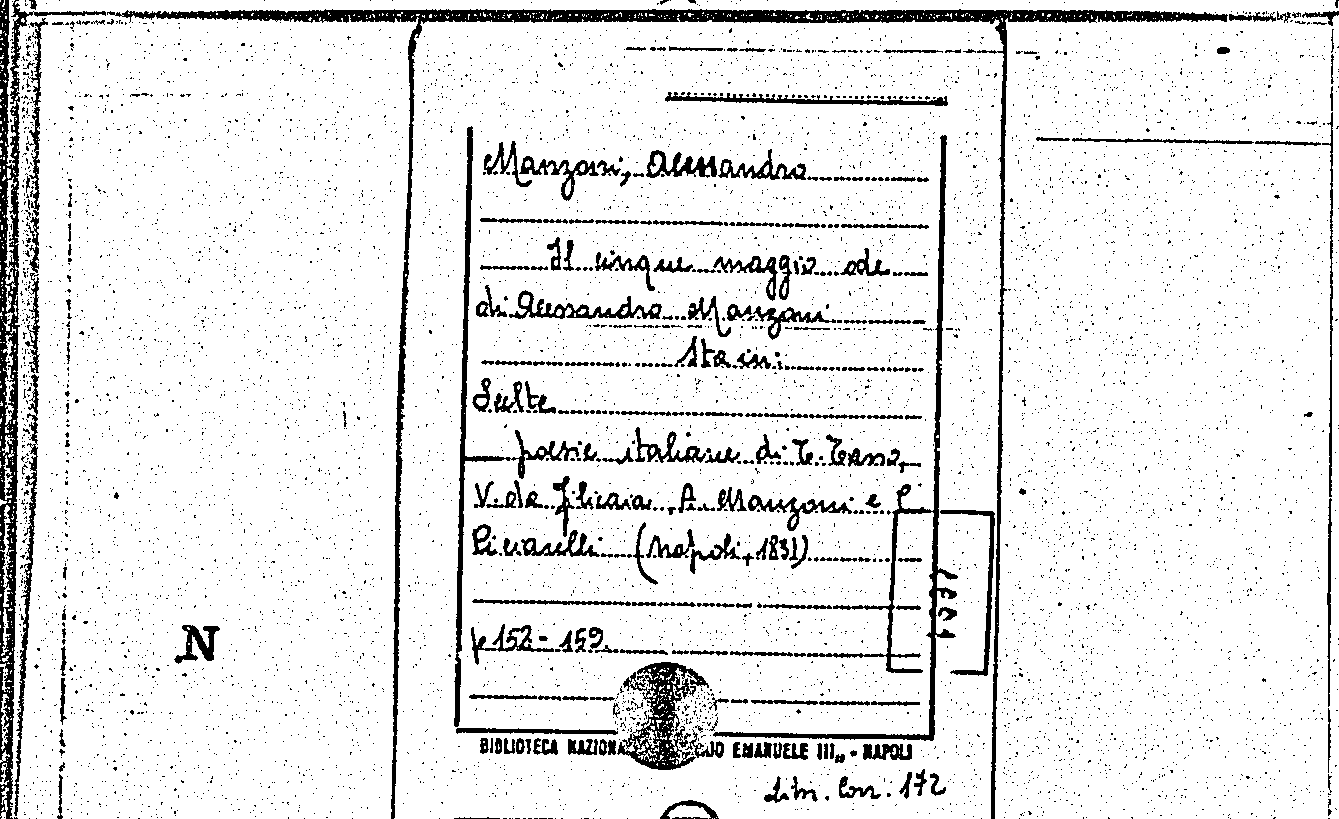 Manzoni, Alessandro
Il cinque maggio ode
di Alessandro Manzoni
Sta in:
Scelte
poesie italiane di T. Tasso,
V. da Filicaia, A. Manzoni e
(Napoli, 1831)
p 152-159.
N
BIBLIOTECA EMANUELE III„ - NAPOLI
172